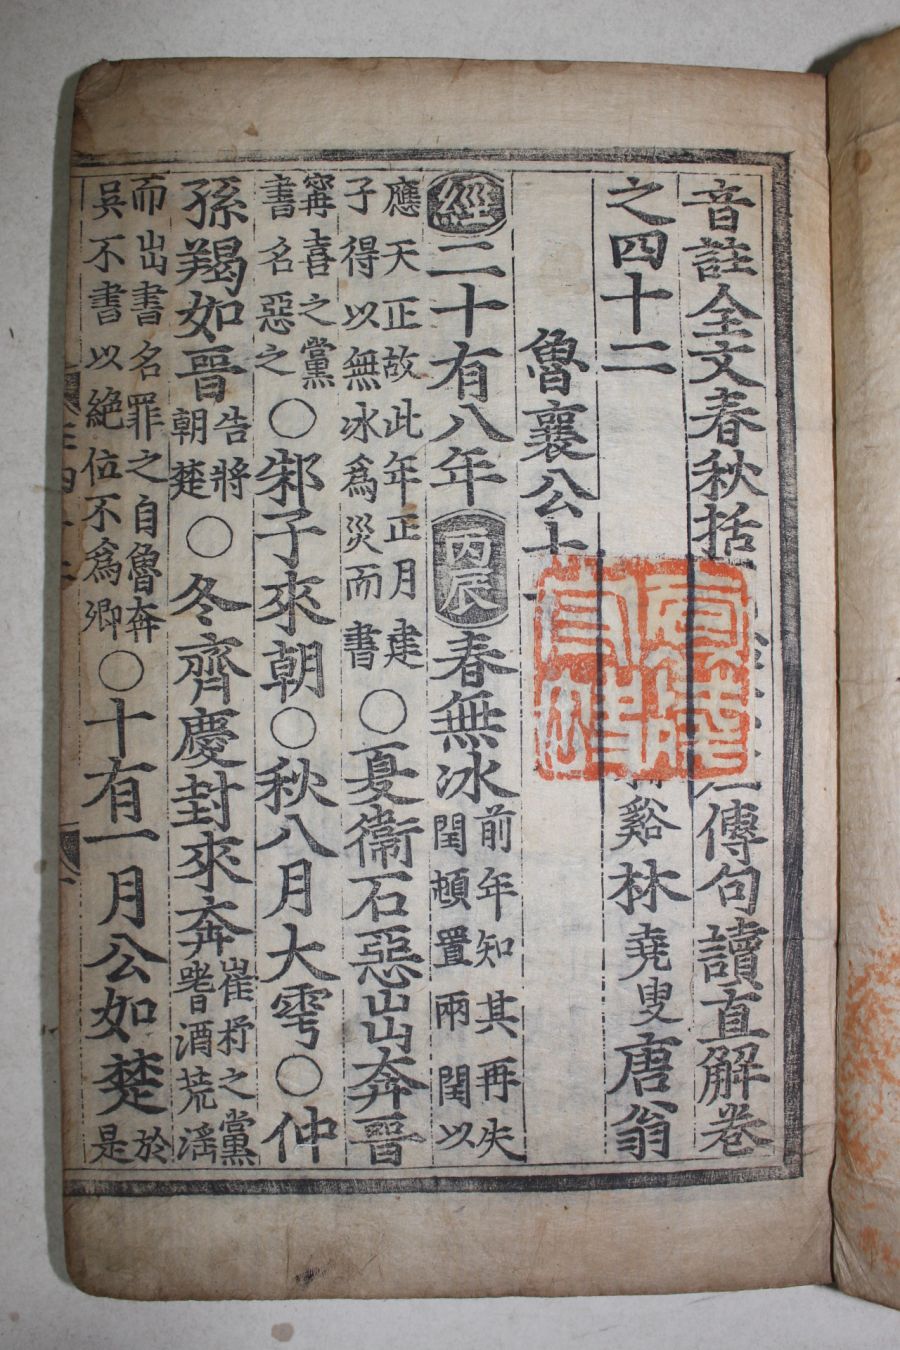 音註全文春秋括傳句讀直解卷
之四十二 谿林堯叟唐翁
魯襄公十
經二十有八年丙辰春無冰前年知其再失閏頓置兩閏以
應天正故此年正月建子得以無冰爲災而書○夏衞石惡出奔晉
甯喜之黨書名惡之○邾子來朝○秋八月大雩○仲
孫羯如晉告將朝楚○冬齊慶封來奔崔杼之黨嗜酒荒淫
而出書名罪之自魯奔吳不書以絶位不爲卿○十有一月公如楚於是